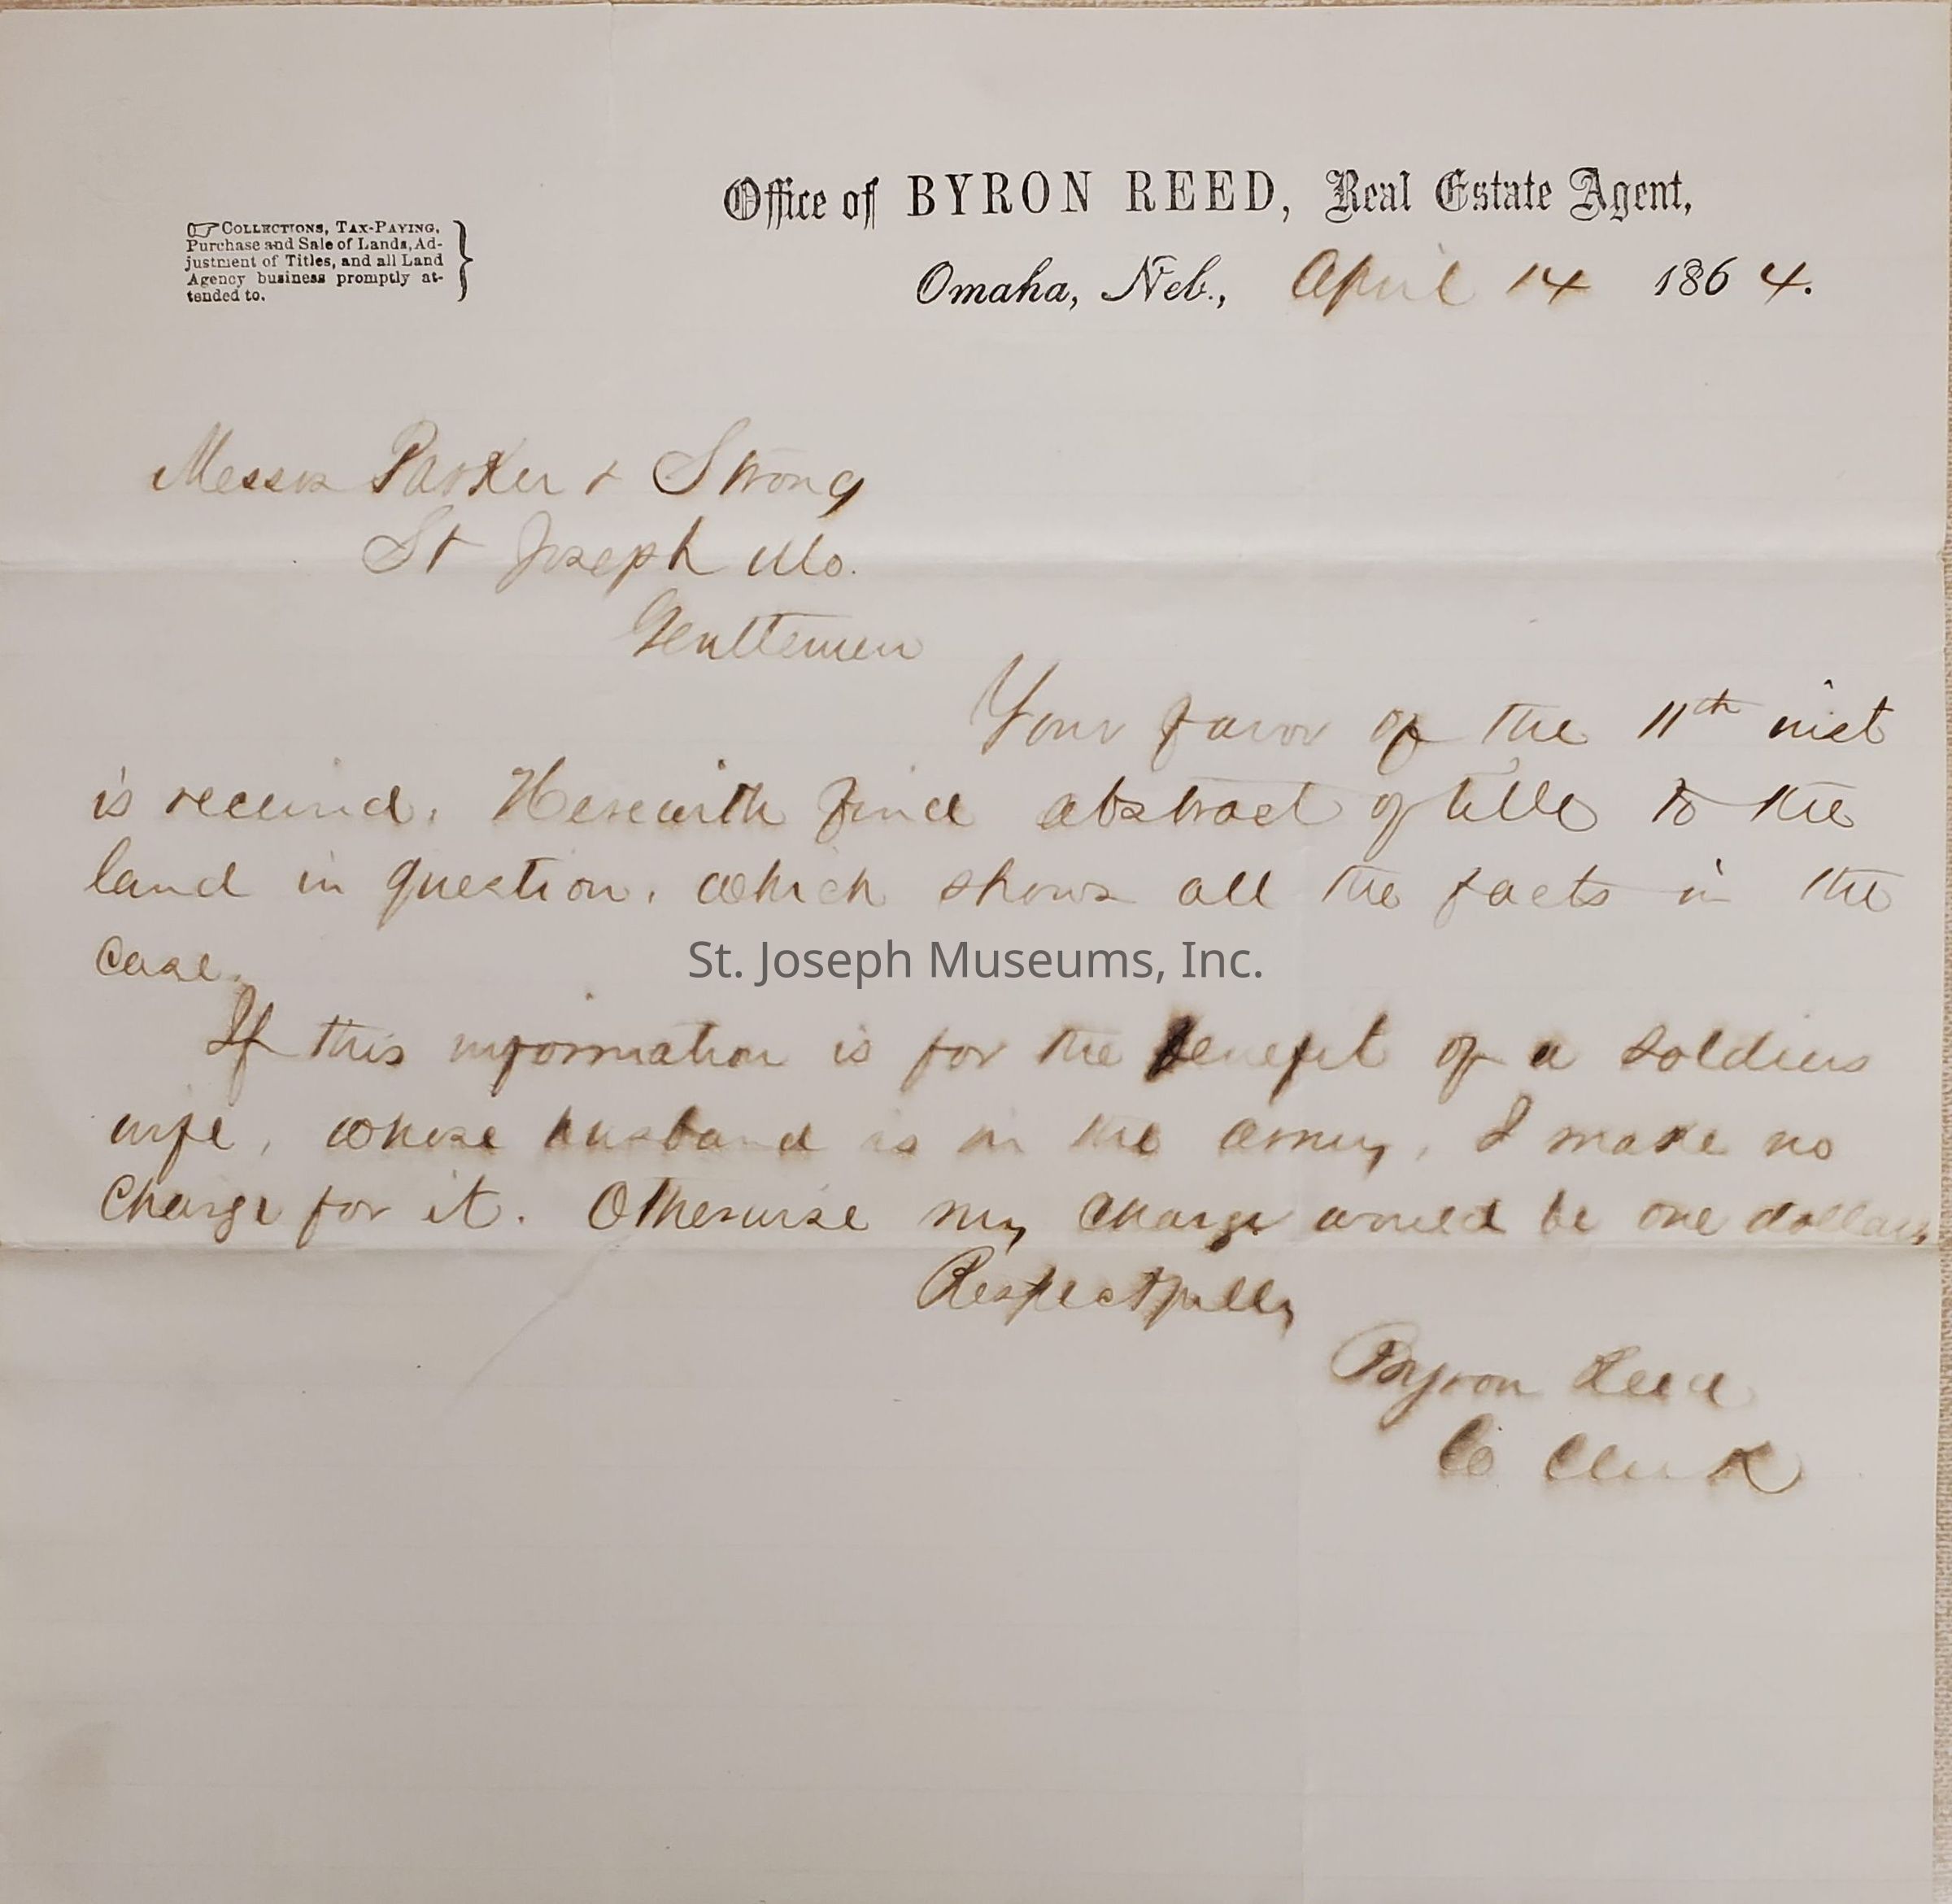 Office of BYRON REED, Real Estate Agent,
☞ COLLECTIONS, TAX-PAYING,
Purchase and Sale of Lands, Ad-
justment of Titles, and all Land
Agency business promptly at-
tended to.
Omaha, Neb., April 14 1864.
Messrs Parker & Strong
St Joseph Mo.
Gentlemen
Your favor of the 11th inst
is received. Herewith find abstract of title to the
land in question, which shows all the facts in the
case.
St. Joseph Museums, Inc.
If this information is for the benefit of a soldiers
wife, whose husband is in the army, I make no
charge for it. Otherwise my charge would be one dollar,
Respectfully
Byron Reed
Co Clerk